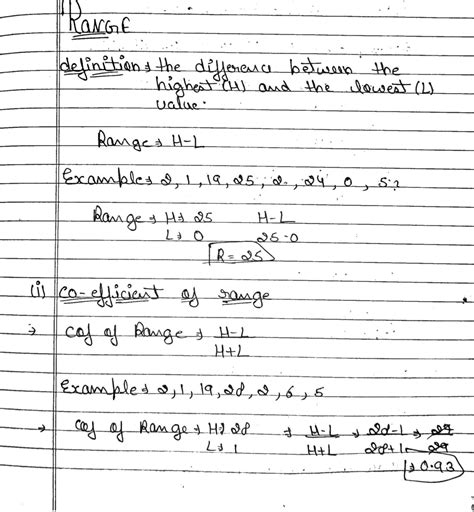 1) RANGE
definition → the difference between the
highest (H) and the lowest (L)
value.
Range → H-L
Example → 2, 1, 19, 25, 2, 24, 0, 5?
Range → H → 25 H-L
L → 0 25-0
R = 25
(i) co-efficient of range
→ cof of Range → H-L
H+L
Example → 2, 1, 19, 28, 2, 6, 5
→ cof of Range → H → 28 → H-L → 28-1 → 27
L → 1 H+L 28+1 29
→ 0.93